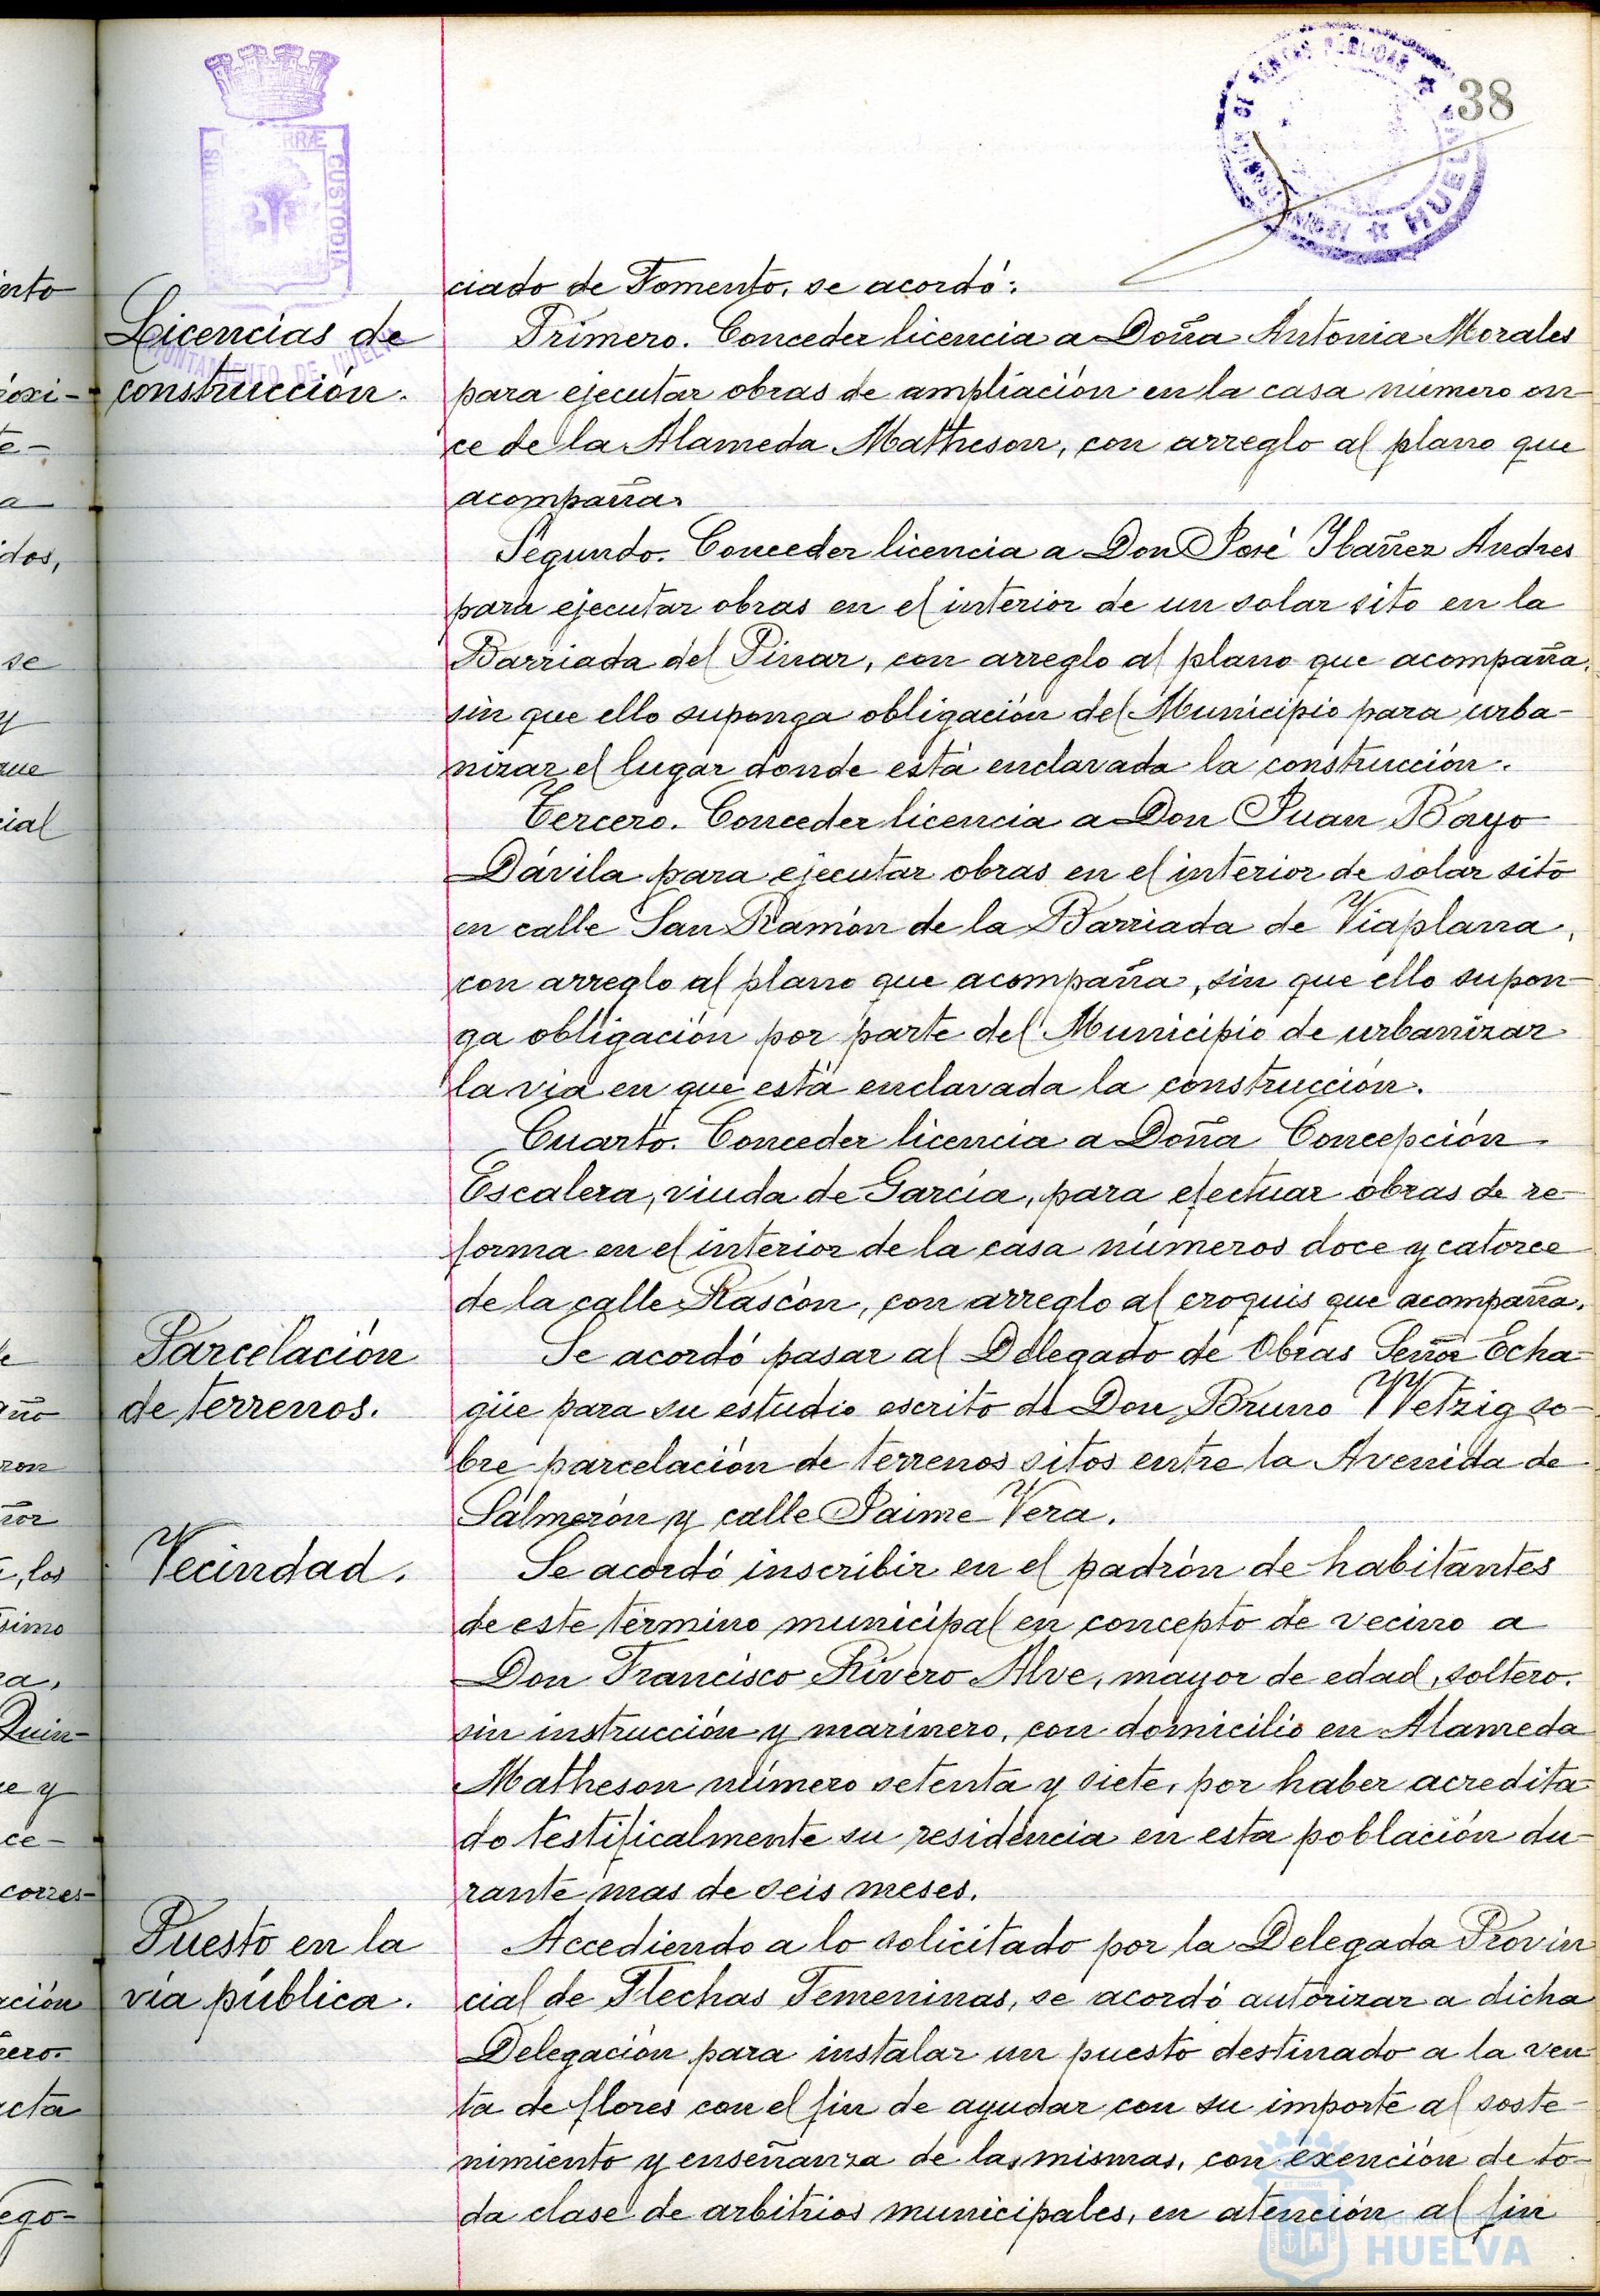 38
ciado de Fomento, se acordó:
Licencias de
construcción.
Primero. Conceder licencia a Doña Antonia Morales
para ejecutar obras de ampliación en la casa número on-
ce de la Alameda Matheson, con arreglo al plano que
acompaña.
Segundo. Conceder licencia a Don José Ybañez Andres
para ejecutar obras en el interior de un solar sito en la
Barriada del Pinar, con arreglo al plano que acompaña,
sin que ello suponga obligación del Municipio para urba-
nizar el lugar donde está enclavada la construcción.
Tercero. Conceder licencia a Don Juan Bayo
Dávila para ejecutar obras en el interior de solar sito
en calle San Ramón de la Barriada de Viaplana,
con arreglo al plano que acompaña, sin que ello supon-
ga obligación por parte del Municipio de urbanizar
la via en que está enclavada la construcción.
Cuarto. Conceder licencia a Doña Concepción
Escalera, viuda de García, para efectuar obras de re-
forma en el interior de la casa números doce y catorce
de la calle Rascón, con arreglo al croquis que acompaña.
Parcelación
de terrenos.
Se acordó pasar al Delegado de Obras Señor Echa-
güe para su estudio escrito de Don Bruno Wetzig so-
bre parcelación de terrenos sitos entre la Avenida de
Salmerón y calle Jaime Vera.
Vecindad.
Se acordó inscribir en el padrón de habitantes
de este término municipal en concepto de vecino a
Don Francisco Rivero Alve, mayor de edad, soltero,
sin instrucción y marinero, con domicilio en Alameda
Matheson número setenta y siete, por haber acredita-
do testificalmente su residencia en esta población du-
rante mas de seis meses.
Puesto en la
via pública.
Accediendo a lo solicitado por la Delegada Provin
cial de Flechas Femeninas, se acordó autorizar a dicha
Delegación para instalar un puesto destinado a la ven
ta de flores con el fin de ayudar con su importe al soste-
nimiento y enseñanza de las mismas, con exención de to-
da clase de arbitrios municipales, en atención al fin
HUELVA